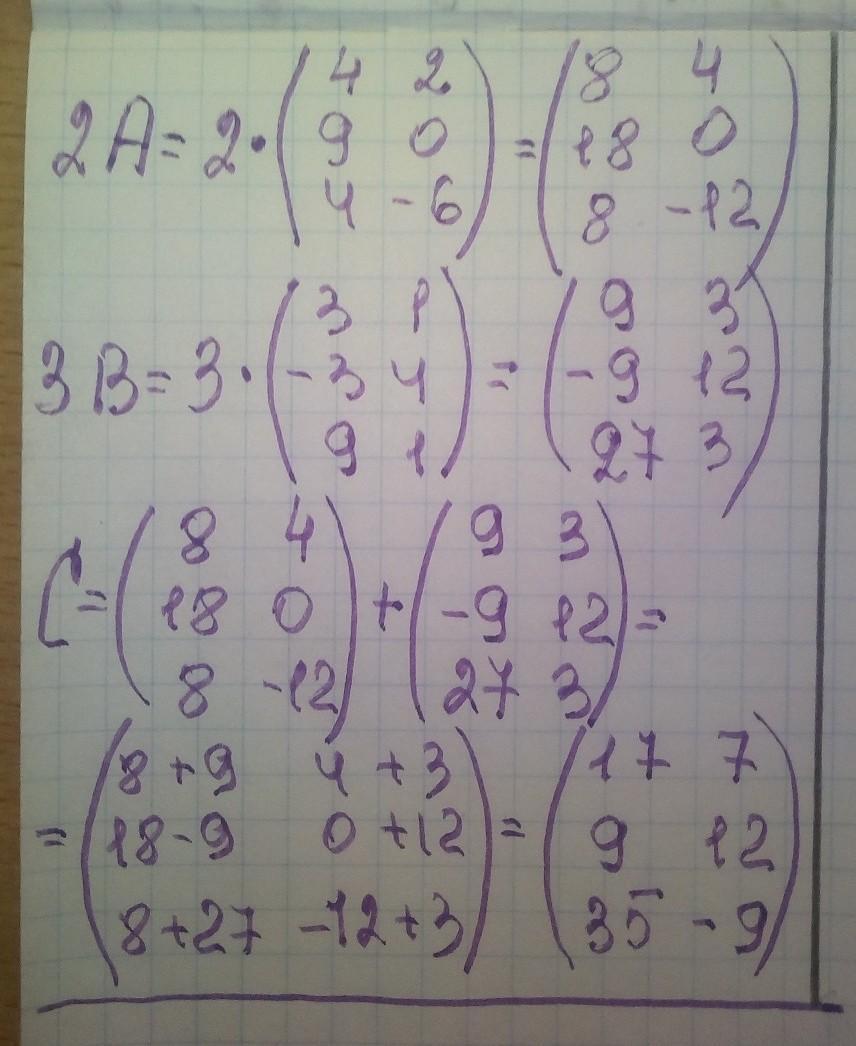 2A = 2 · ( 4 2 ; 9 0 ; 4 -6 ) = ( 8 4 ; 18 0 ; 8 -12 )
3B = 3 · ( 3 1 ; -3 4 ; 9 1 ) = ( 9 3 ; -9 12 ; 27 3 )
C = ( 8 4 ; 18 0 ; 8 -12 ) + ( 9 3 ; -9 12 ; 27 3 ) =
= ( 8+9 4+3 ; 18-9 0+12 ; 8+27 -12+3 ) = ( 17 7 ; 9 12 ; 35 -9 )